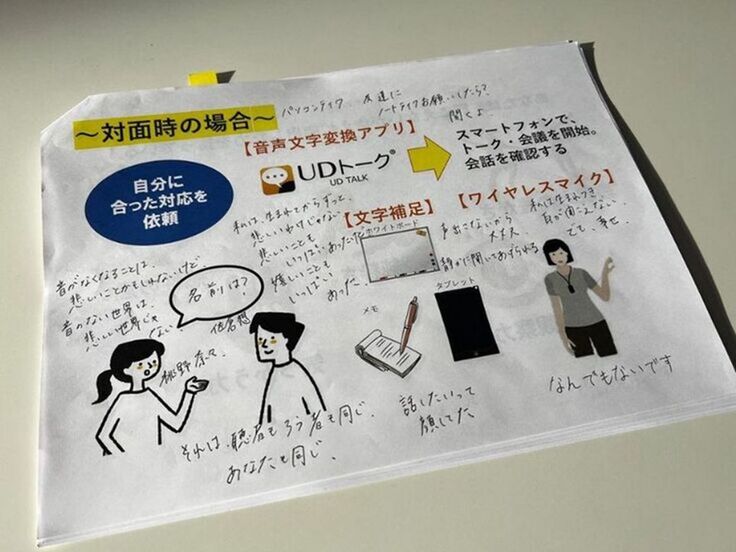 パソコンテイク 友達に
ノートテイクお願いしたら?
聞くよ
～対面時の場合～
【音声文字変換アプリ】
UDトーク®
UD TALK
スマートフォンで、
トーク・会議を開始。
会話を確認する
自分に
合った対応を
依頼
【文字補足】
【ワイヤレスマイク】
私は、生まれてからずっと、
悲しいわけじゃない
悲しいことも
いっぱいあったけど
嬉しいことも
いっぱい
あった、
ホワイトボード
声出さないから
大丈夫
静かに聞いてあげられる
私は生まれつき、
耳が聞こえない
でも、幸せ、
音がなくなることは、
悲しいことかもしれないけど
音のない世界は、
悲しい世界じゃ
ない
名前は?
佐倉想
桃野奈々、
メモ
タブレット
それは、聴者もろう者も同じ、
あなたも同じ、
話したいって
顔してた
なんでもないです